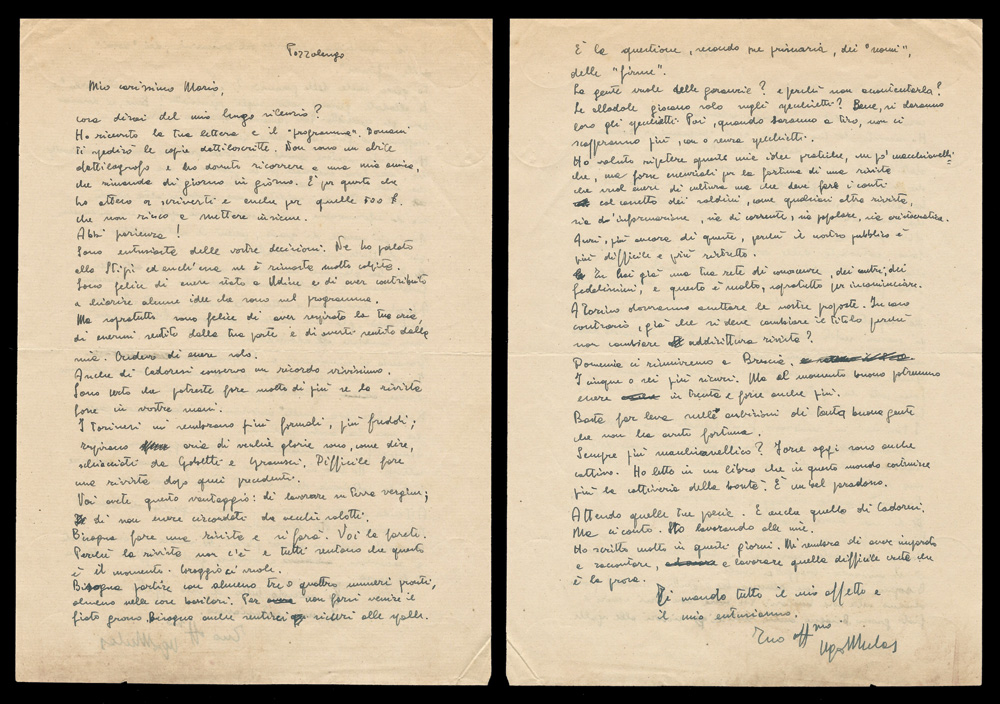 Pozzolengo
Mio carissimo Mario,
cosa dirai del mio lungo silenzio?
Ho ricevuto la tua lettera e il "programma". Domani
ti spedirò le copie dattiloscritte. Non sono un abile
dattilografo e ho dovuto ricorrere a una mia amica,
che rimanda di giorno in giorno. È per questo che
ho atteso a scriverti e anche per quelle 500 £.
che non riesco a mettere insieme.
Abbi pazienza!
Sono entusiasta delle vostre decisioni. Ne ho parlato
alla Stipi ed anch'essa ne è rimasta molto colpita.
Sono felice di essere stato a Udine e di aver contribuito
a chiarire alcune idee che sono nel programma.
Ma sopratutto sono felice di aver respirato la tua aria,
di essermi sentito dalla tua parte e di averti sentito dalla
mia. Credevo di essere solo.
Anche di Cadoresi conservo un ricordo vivissimo.
Sono certo che potreste fare molto di più se la rivista
fosse in vostre mani.
I Torinesi mi sembrano più formali, più freddi;
respirano aria di vecchie glorie sono, come dire,
schiacciati da Gobetti e Gramsci. Difficile fare
una rivista dopo quei precedenti.
Voi avete questo vantaggio: di lavorare in terra vergine;
di non essere circondati da vecchi salotti.
Bisogna fare una rivista e si farà. Voi la farete.
Perché la rivista non c'è e tutti sentono che questo
è il momento. Coraggio ci vuole.
Bisogna partire con almeno tre o quattro numeri pronti,
almeno nelle cose basilari. Per non farsi venire il
fiato grosso. Bisogna anche sentirsi sicuri alle spalle.
È la questione, secondo me primaria, dei "nomi",
delle "firme".
La gente vuole delle garanzie? e perché non accontentarla?
Le allodole giocano solo sugli specchietti? Bene, si daranno
loro gli specchietti. Poi, quando saranno a tiro, non ci
scapperanno più, con o senza specchietti.
Ho voluto ripetere queste mie idee pratiche, un po' macchiavelli-
che, ma forse essenziali per la fortuna di una rivista
che vuol essere di cultura ma che deve fare i conti
col cassetto dei soldini, come qualsiasi altra rivista,
sia da informazione, sia di corrente, sia popolare, sia aristocratica.
Anzi, più ancora di queste, perché il nostro pubblico è
più difficile e più ristretto.
Tu hai già una tua rete di conoscenze, dei centri, dei
fedelissimi, e questo è molto, sopratutto per incominciare.
A Torino dovranno accettare le nostre proposte. In caso
contrario, già che si deve cambiare il titolo perché
non cambiare addirittura rivista?
Domenica ci riuniremo a Brescia.
I cinque o sei più sicuri. Ma al momento buono potremmo
essere in trenta e forse anche più.
Basta far leva sulle ambizioni di tanta buona gente
che non ha avuto fortuna.
Sempre più macchiavellico? Forse oggi sono anche
cattivo. Ho letto in un libro che in questo mondo costruisce
più la cattiveria della bontà. È un bel paradosso.
Attendo quelle tre poesie. E anche quello di Cadoresi.
Ma ci conto. Sto lavorando alle mie.
Ho scritto molto in questi giorni. Mi sembra di aver imparato
a raccontare, e lavorare quella difficile creta che
è la prosa.
Ti mando tutto il mio affetto e
il mio entusiasmo.
Tuo aff.mo
Ugo Mulas